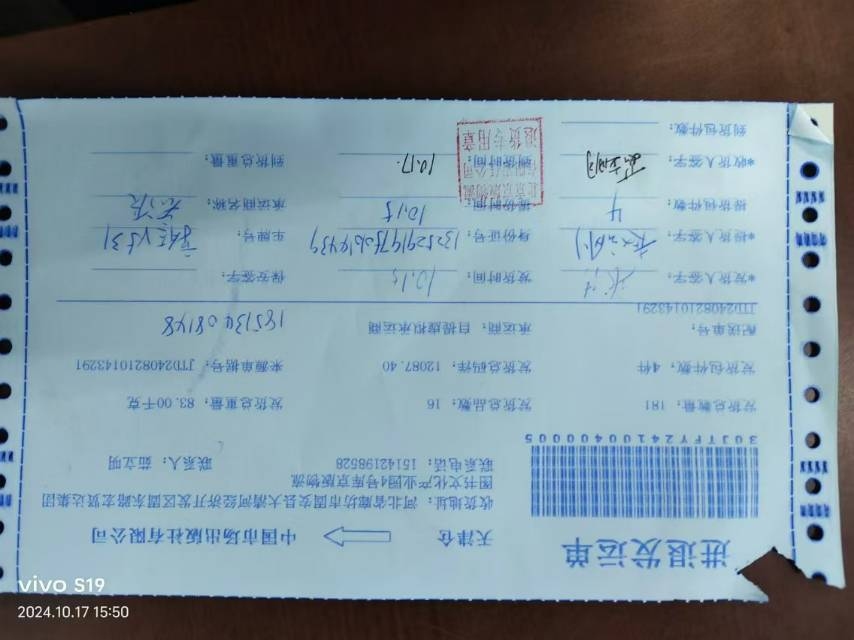 进退发运单
天津仓 中国市场出版社有限公司
收货地址：河北省廊坊市固安县大清河经济开发区固东路宏贤达集团
图书文化产业园4号库京版物流
联系电话：15142198528 联系人：茹立明
30JTFY2410040005
发货总数量：181 发货总品数：16 发货总重量：83.00千克
发货包件数：4件 发货总码洋：12087.40 来源单据号：JTD2408210143291
配送单号： 承运商：自提虚拟承运商 18513408148
JTD2408210143291
*发货人签字： 发货时间：10.15 保安签字：
*提货人签字： 身份证号： 车牌号：
提货包件数：4 提货时间：10.15 承运商名称：
*收货人签字： 到货时间：10.17. 到货总重量：
到货包件数：
退货专用章
vivo S19
2024.10.17 15:50